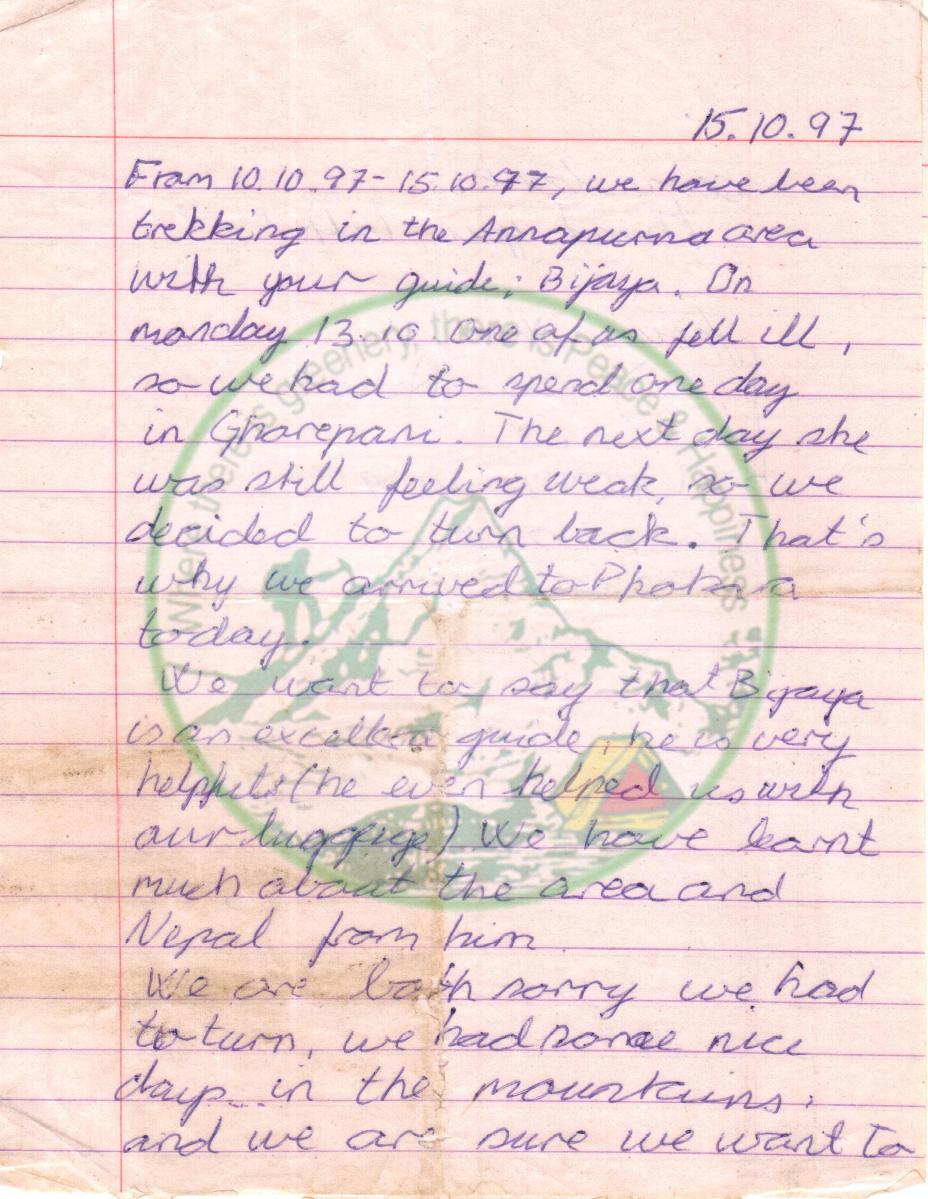 15.10.97
From 10.10.97-15.10.97, we have been
trekking in the Annapurna area
with your guide; Bijaya. On
monday 13.10 one of us fell ill,
so we had to spend one day
in Ghorepani. The next day she
was still feeling weak, so we
decided to turn back. That's
why we arrived to Phokara
today.
We want to say that Bijaya
is an excellent guide, he is very
helpful (he even helped us with
our luggage) We have learnt
much about the area and
Nepal from him.
We are both sorry we had
to turn, we had some nice
days in the mountains.
and we are sure we want to
Where there is greenery, there is Peace & Happiness